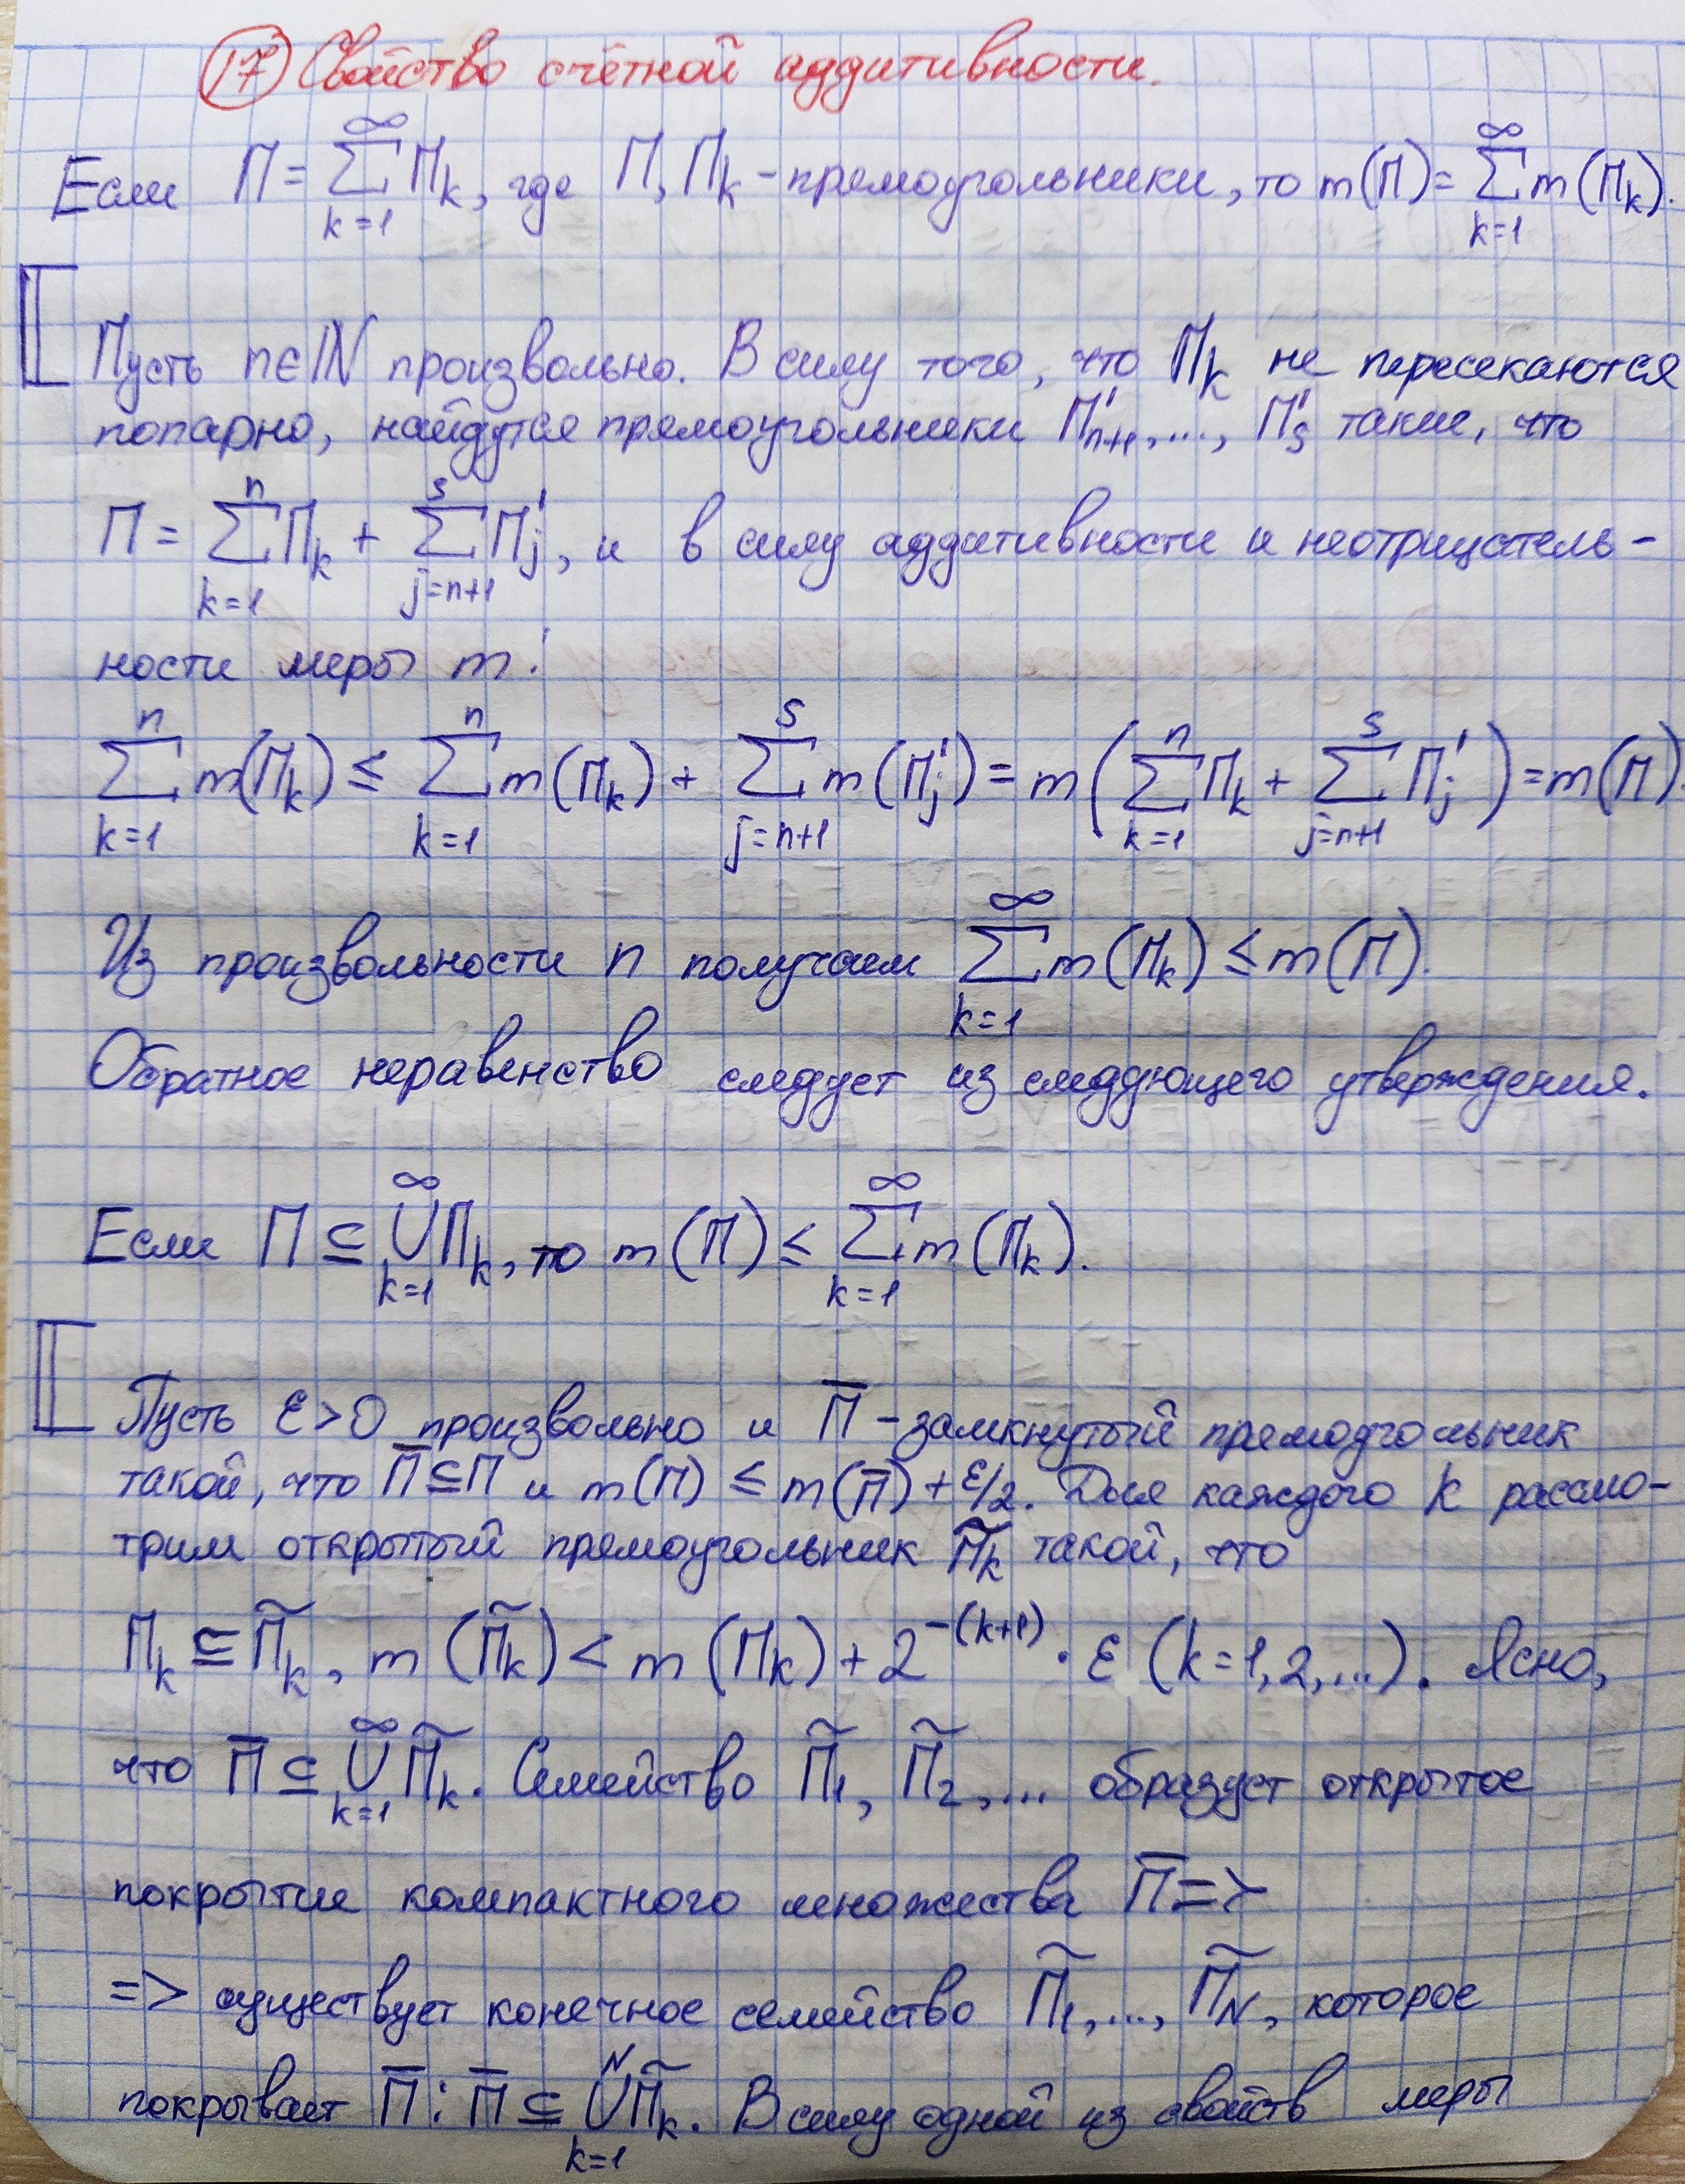 17 Свойство счётной аддитивности.
Если П = ∑_{k=1}^{∞} П_k, где П, П_k - прямоугольники, то m(П) = ∑_{k=1}^{∞} m(П_k).
Пусть n∈ℕ произвольно. В силу того, что П_k не пересекаются
попарно, найдутся прямоугольники П'_{n+1}, ..., П'_s такие, что
П = ∑_{k=1}^{n} П_k + ∑_{j=n+1}^{s} П'_j, и в силу аддитивности и неотрицатель-
ности меры m:
∑_{k=1}^{n} m(П_k) ≤ ∑_{k=1}^{n} m(П_k) + ∑_{j=n+1}^{s} m(П'_j) = m(∑_{k=1}^{n} П_k + ∑_{j=n+1}^{s} П'_j) = m(П).
Из произвольности n получаем ∑_{k=1}^{∞} m(П_k) ≤ m(П).
Обратное неравенство следует из следующего утверждения.
Если П ⊆ ⋃_{k=1}^{∞} П_k, то m(П) ≤ ∑_{k=1}^{∞} m(П_k).
Пусть ε > 0 произвольно и П̅ - замкнутый прямоугольник
такой, что П̅ ⊆ П и m(П) ≤ m(П̅) + ε/2. Для каждого k рассмо-
трим открытый прямоугольник П̃_k такой, что
П_k ⊆ П̃_k, m(П̃_k) < m(П_k) + 2^{-(k+1)} · ε (k=1,2,...). Ясно,
что П̅ ⊆ ⋃_{k=1}^{∞} П̃_k. Семейство П̃_1, П̃_2, ... образует открытое
покрытие компактного множества П̅ =>
=> существует конечное семейство П̃_1, ..., П̃_N, которое
покрывает П̅ : П̅ ⊆ ⋃_{k=1}^{N} П̃_k. В силу одной из свойств меры